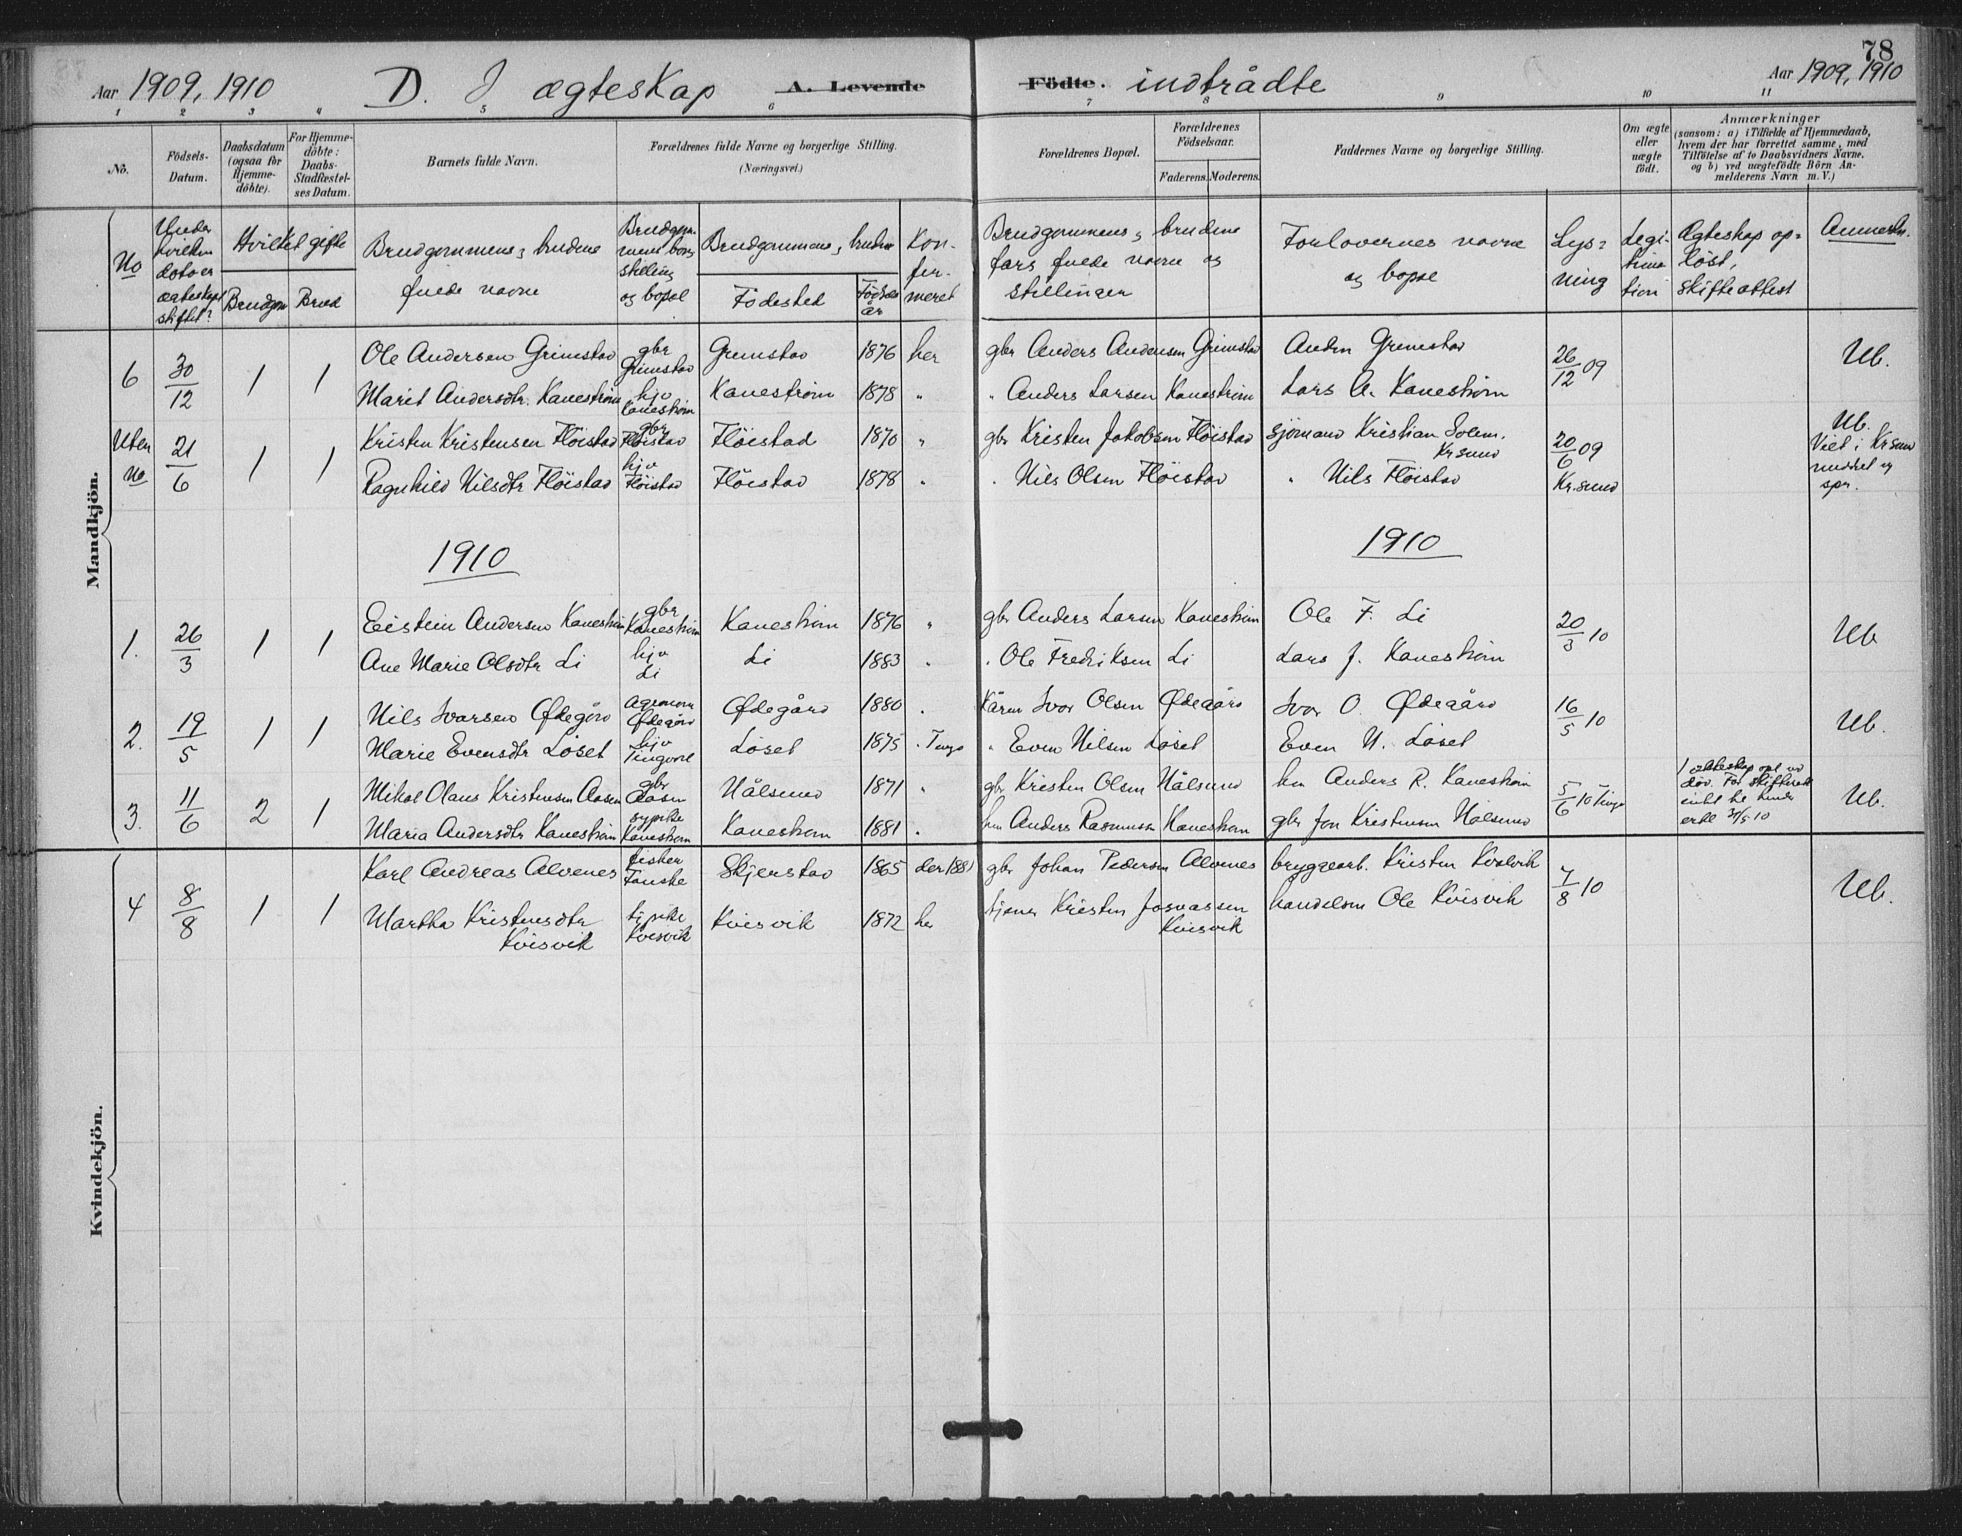 78
Aar 1909, 1910 D. I ægteskap A. Levende Födte. indtrådte Aar 1909, 1910
1 2 3 4 5 6 7 8 9 10 11
No. Födsels-Datum. Daabsdatum (ogsaa för Hjemmedöbte). For Hjemmedöbte: Daabs-Stadfæstelses Datum. Barnets fulde Navn. Forældrenes fulde Navne og borgerlige Stilling. (Næringsvei.) Forældrenes Bopæl. Forældrenes Födselsaar. Faderens. Moderens. Faddernes Navne og borgerlige Stilling. Om ægte eller uægte födt. Anmærkninger (saasom: a) i Tilfælde af Hjemmedaab, hvem der har forrettet samme, med Tilföielse af to Daabsvidners Navne, og b) ved uægtefödte Börn Anmelderens Navn m. V.)
No Under hvilken dato er ægteskapet stiftet? Hvilket gifte Brudgom Brud Brudgommens, brudens fulde navne Brudgommens, brudens stilling og bopæl Brudgommens, brudens Fødested Fødselsår Konfirmeret Brudgommens, brudens fars fulde navne og stillinger Forlovernes navne og bopæl Lysning Legitimation Ægteskap opløst, skifteattest Anmerkn.
6 30/12 1 1 Ole Andersen Grimstad gbr Grimstad Grimstad 1876 her gbr Anders Andersen Grimstad Anders Grimstad 26/12 09 Ub.
Marit Andersdtr. Kanestrøm hjv Kanestrøm Kanestrøm 1878 " " Anders Larsen Kanestrøm Lars A. Kanestrøm
Uten No 21/6 1 1 Kristen Kristensen Fløistad gbr Fløistad Fløistad 1870 " gbr Kristen Jakobsen Fløistad sjømand Kristian Solem. Kr.sund 20/6 09 Kr.sund Ub. Viet i Kr.sund
Ragnhild Nilsdtr Fløistad hjv Fløistad Fløistad 1878 " " Nils Olsen Fløistad " Nils Fløistad
1910 1910
1. 26/3 1 1 Eistein Andersen Kanestrøm gbr Kanestrøm Kanestrøm 1876 " gbr Anders Larsen Kanestrøm Ole F. Li 20/3 10 Ub
Ane Marie Olsdtr Li hjv Li Li 1883 " " Ole Fredriksen Li Lars J. Kanestrøm
2. 19/5 1 1 Nils Ivarsen Ødegård agronom Ødegård Ødegård 1880 " Kårm Ivar Olsen Ødegård Ivar O. Ødegård 16/5 10 Ub.
Marie Evensdtr Løset hjv Tingvoll Løset 1875 " Tingv " Even Nilsen Løset Even N. Løset
3. 11/6 2 1 Mikal Olaus Kristensen Aasen gbr Aasen Nålsund 1871 " gbr Kristen Olsen Nålsund hm Anders R. Kanestrøm 5/6 10 Tingv 1 ekteskap opl ved død. For skifterett intet til hinder erkl 31/5 10 Ub.
Maria Andersdtr Kanestrøm sypike Kanestrøm Kanestrøm 1881 " hm Anders Rasmussen Kanestrøm gbr Jon Kristensen Nålsund
4 8/8 1 1 Karl Andreas Alvenes fisker Fauske Skjerstad 1865 der 1881 gbr Johan Pedersen Alvenes bryggearb. Kristen Kvisvik 7/8 10 Ub.
Martha Kristensdtr Kvisvik sypike Kvisvik Kvisvik 1872 her tjener Kristen Josvassen Kvisvik handelsm Ole Kvisvik
Mandkjön.
Kvindekjön.